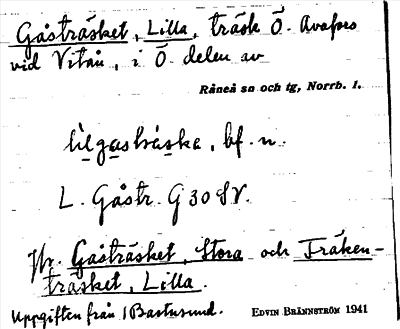 Gåsträsket, Lilla, träsk Ö. Avafors
vid Vitån, i Ö delen av
Råneå sn och tg, Norrb. l.
bf. n.
L. Gåstr. G 30 SV.
Jfr. Gåsträsket, Stora och Fräken-
träsket, Lilla.
Uppgiften från Bastusund. EDVIN BRÄNNSTRÖM 1941